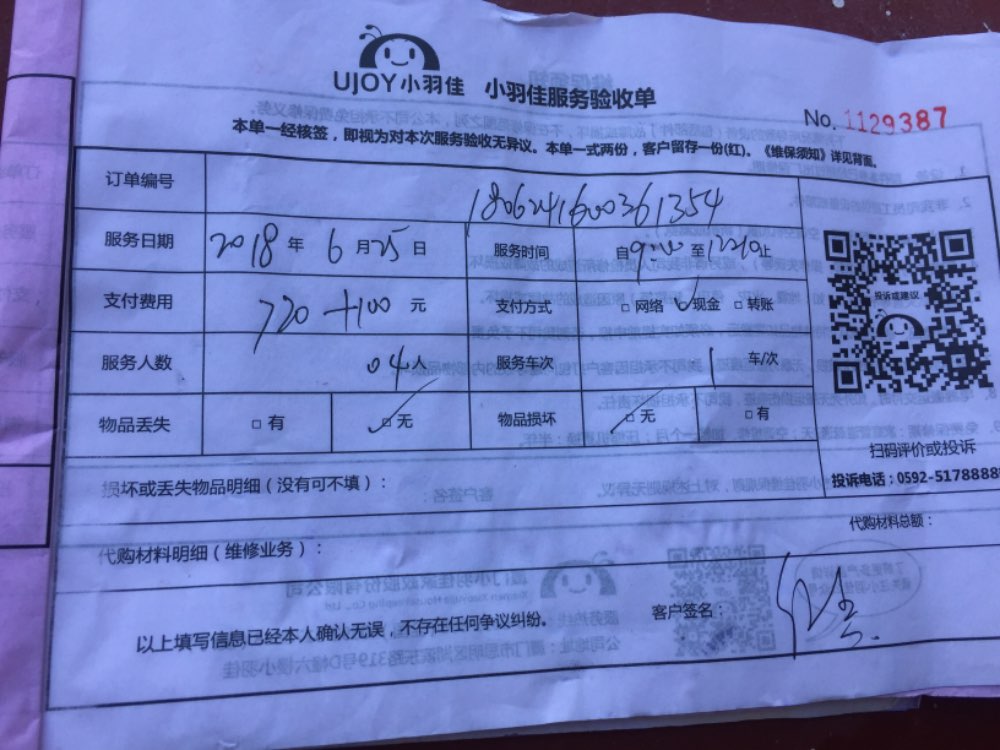 UJOY小羽佳 小羽佳服务验收单
No. 1129387
本单一经核签，即视为对本次服务验收无异议。本单一式两份，客户留存一份(红)。《维保须知》详见背面。
订单编号 1806241600361354
服务日期 2018 年 6 月 25 日 服务时间 自 9:00 至 止
支付费用 720+100 元 支付方式 □ 网络 现金 □ 转账
服务人数 04 人 服务车次 1 车/次
物品丢失 □ 有 □ 无 物品损坏 □ 无 □ 有
投诉或建议
扫码评价或投诉
投诉电话：0592-5178888
损坏或丢失物品明细（没有可不填）：
代购材料明细（维修业务）： 代购材料总额：
以上填写信息已经本人确认无误，不存在任何争议纠纷。 客户签名：